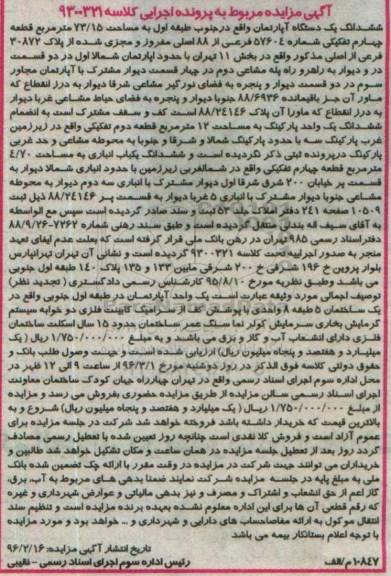 آگهی مزایده مربوط به پرونده اجرایی کلاسه ۹۳۰۰۳۲۱
ششدانگ یک دستگاه آپارتمان واقع درجنوب طبقه اول به مساحت ۷۳/۱۵ مترمربع قطعه
چهارم تفکیکی شماره ۵۷۶۰۴ فرعی از ۸۸ اصلی مفروز و مجزی شده از پلاک ۳۰۸۷۲
فرعی از اصلی مذکور واقع در بخش ۱۱ تهران با حدود اپارتمان شمالا اول در دو قسمت
در و دیوار به راهرو راه پله مشاعی دوم در چهار قسمت دیوار مشترک با آپارتمان مجاور
سوم در دو قسمت دیوار و پنجره به فضای نورگیر مشاعی شرقا دیوار به درز انقطاع که
ماور آن جـز باقیمانده ۸۸/۶۹۳۶ جنوبا دیوار و پنجره به فضای حیاط مشاعی غربا دیوار
به درز انقطاع که ماورا آن پلاک ۸۸/۲۴۱۴۶ است کف و سقف مشترک است به انضمام
ششدانگ یک واحد پارکینگ به مساحت ۱۲ مترمربع قطعه دوم تفکیکی واقع در زیرزمین
غرب پارکینگ سه با حدود پارکینگ شمالا و شرقا و جنوبا به محوطه مشاعی و حد غربی
پارکینگ درپرونده ثبتی ذکر نگردیده است و ششدانگ یکباب انباری به مساحت ۴/۷۰
مترمربع قطعه چهارم تفکیکی واقع در شمالغربی زیرزمین با حدود انباری شمالا دیوار به
قسمت پر خیابان ۲۰۰ شرق شرقا اول دیوار مشترک با انباری سه دوم دیوار به محوطه
مشاعی جنوبا دیوار مشترک با انباری ۵ غربا دیوار به قسمت پر ۸۸/۲۴۱۴۶ ذیل ثبت
۱۰۵۰۹ صفحه ۲۴۱ دفتر املاک جلد ۵۳ ثبت و سند صادر گردیده است سپس مع الواسطه
به آقای سیف اله بندلی منتقل گردیده است و طبق سند رهنی شماره ۷۲۶۲-۸۸/۹/۲۶
دفتراسناد رسمی ۹۸۵ تهران در رهن بانک ملی قرار گرفته است که بعلت عدم ایفای تعهد
منجر به صدور اجراییه تحت کلاسه ۹۳۰۰۳۲۱ گردیده است و نشانی آن تهران تهرانپارس
بلوار پروین خ ۱۹۶ شرقی خ ۲۰۰ شرقی مابین ۱۳۳ و ۱۳۵ پلاک ۱۴۰ طبقه اول جنوبی
می باشد وطبـق نظریه مورخ ۹۵/۸/۱۰ کارشناس رسمی دادگستری ( تجدید نظر)
توصیف اجمالی مورد وثیقه عبارت است یک واحد آپارتمان در طبقه اول جنوبی واقع در
یک ساختمان ۵ طبقه ۸ واحدی با پوشش کف از سرامیک کابینت فلزی دو خوابه سیستم
گرمایش بخاری سرمایش کولر نما سنگ عمر ساختمان حدود ۱۵ سال اسکلت ساختمان
فلـزی دارای انشعاب آب و گاز و برق می باشـد و به مبلغ ۱/۷۵۰/۰۰۰/۰۰۰ ریال ( یک
میلیارد و هفتصد و پنجاه میلیون ریال) ارزیابی شده است و جهت وصول طلب بانک و
حقوق دولتی کلاسه فوق الذکر در روز دوشنبه مورخ ۹۶/۳/۱ از ساعت ۹ الی ۱۲ ظهر در
محل اداره سوم اجرای اسناد رسمی واقع در تهران چهارراه جهان کودک ساختمان معاونت
اجرای اسناد رسمی سالن مزایده از طریق مزایده حضوری بفروش می رسد و مزایده
از مبلغ ۱/۷۵۰/۰۰۰/۰۰۰ ریـال ( یک میلیارد و هفتصد و پنجاه میلیون ریال) شروع و به
بالاترین قیمت که خریدار داشته باشد فروخته خواهد شد شرکت در جلسه مزایده برای
عموم آزاد است و فروش کلا نقدی است چنانچه روز تعیین شده با تعطیل رسمی مصادف
گردد روز بعد از تعطیل جلسه مزایده در همان ساعت و مکان تشکیل خواهد شد طالبین و
خریداران می توانند جهت شرکت در مزایده در وقت مقرر با ارائه چک تضمین شده بانک
ملی به مبلغ پایه در جلسه مزایده شرکت نمایند ضمنا بدهی های مربوط به آب، برق،
گاز اعم از حق انشعاب و اشتراک و مصرف و نیز بدهی مالیاتی و عوارض شهرداری و غیره
که رقم قطعی آن ها برای این اداره معلوم نشده بعهده برنده مزایده است و تنظیم سند
انتقال موکول به ارائه مفاصاحساب های دارایی و شهرداری و ... خواهد بود و مورد مزایده
با توجه اعلام بستانکار بیمه می باشد
تاریخ انتشار آگهی مزایده: ۹۶/۲/۱۶
۱۰۸۴۷ م/الف رئیس اداره سوم اجرای اسناد رسمی - نقیبی